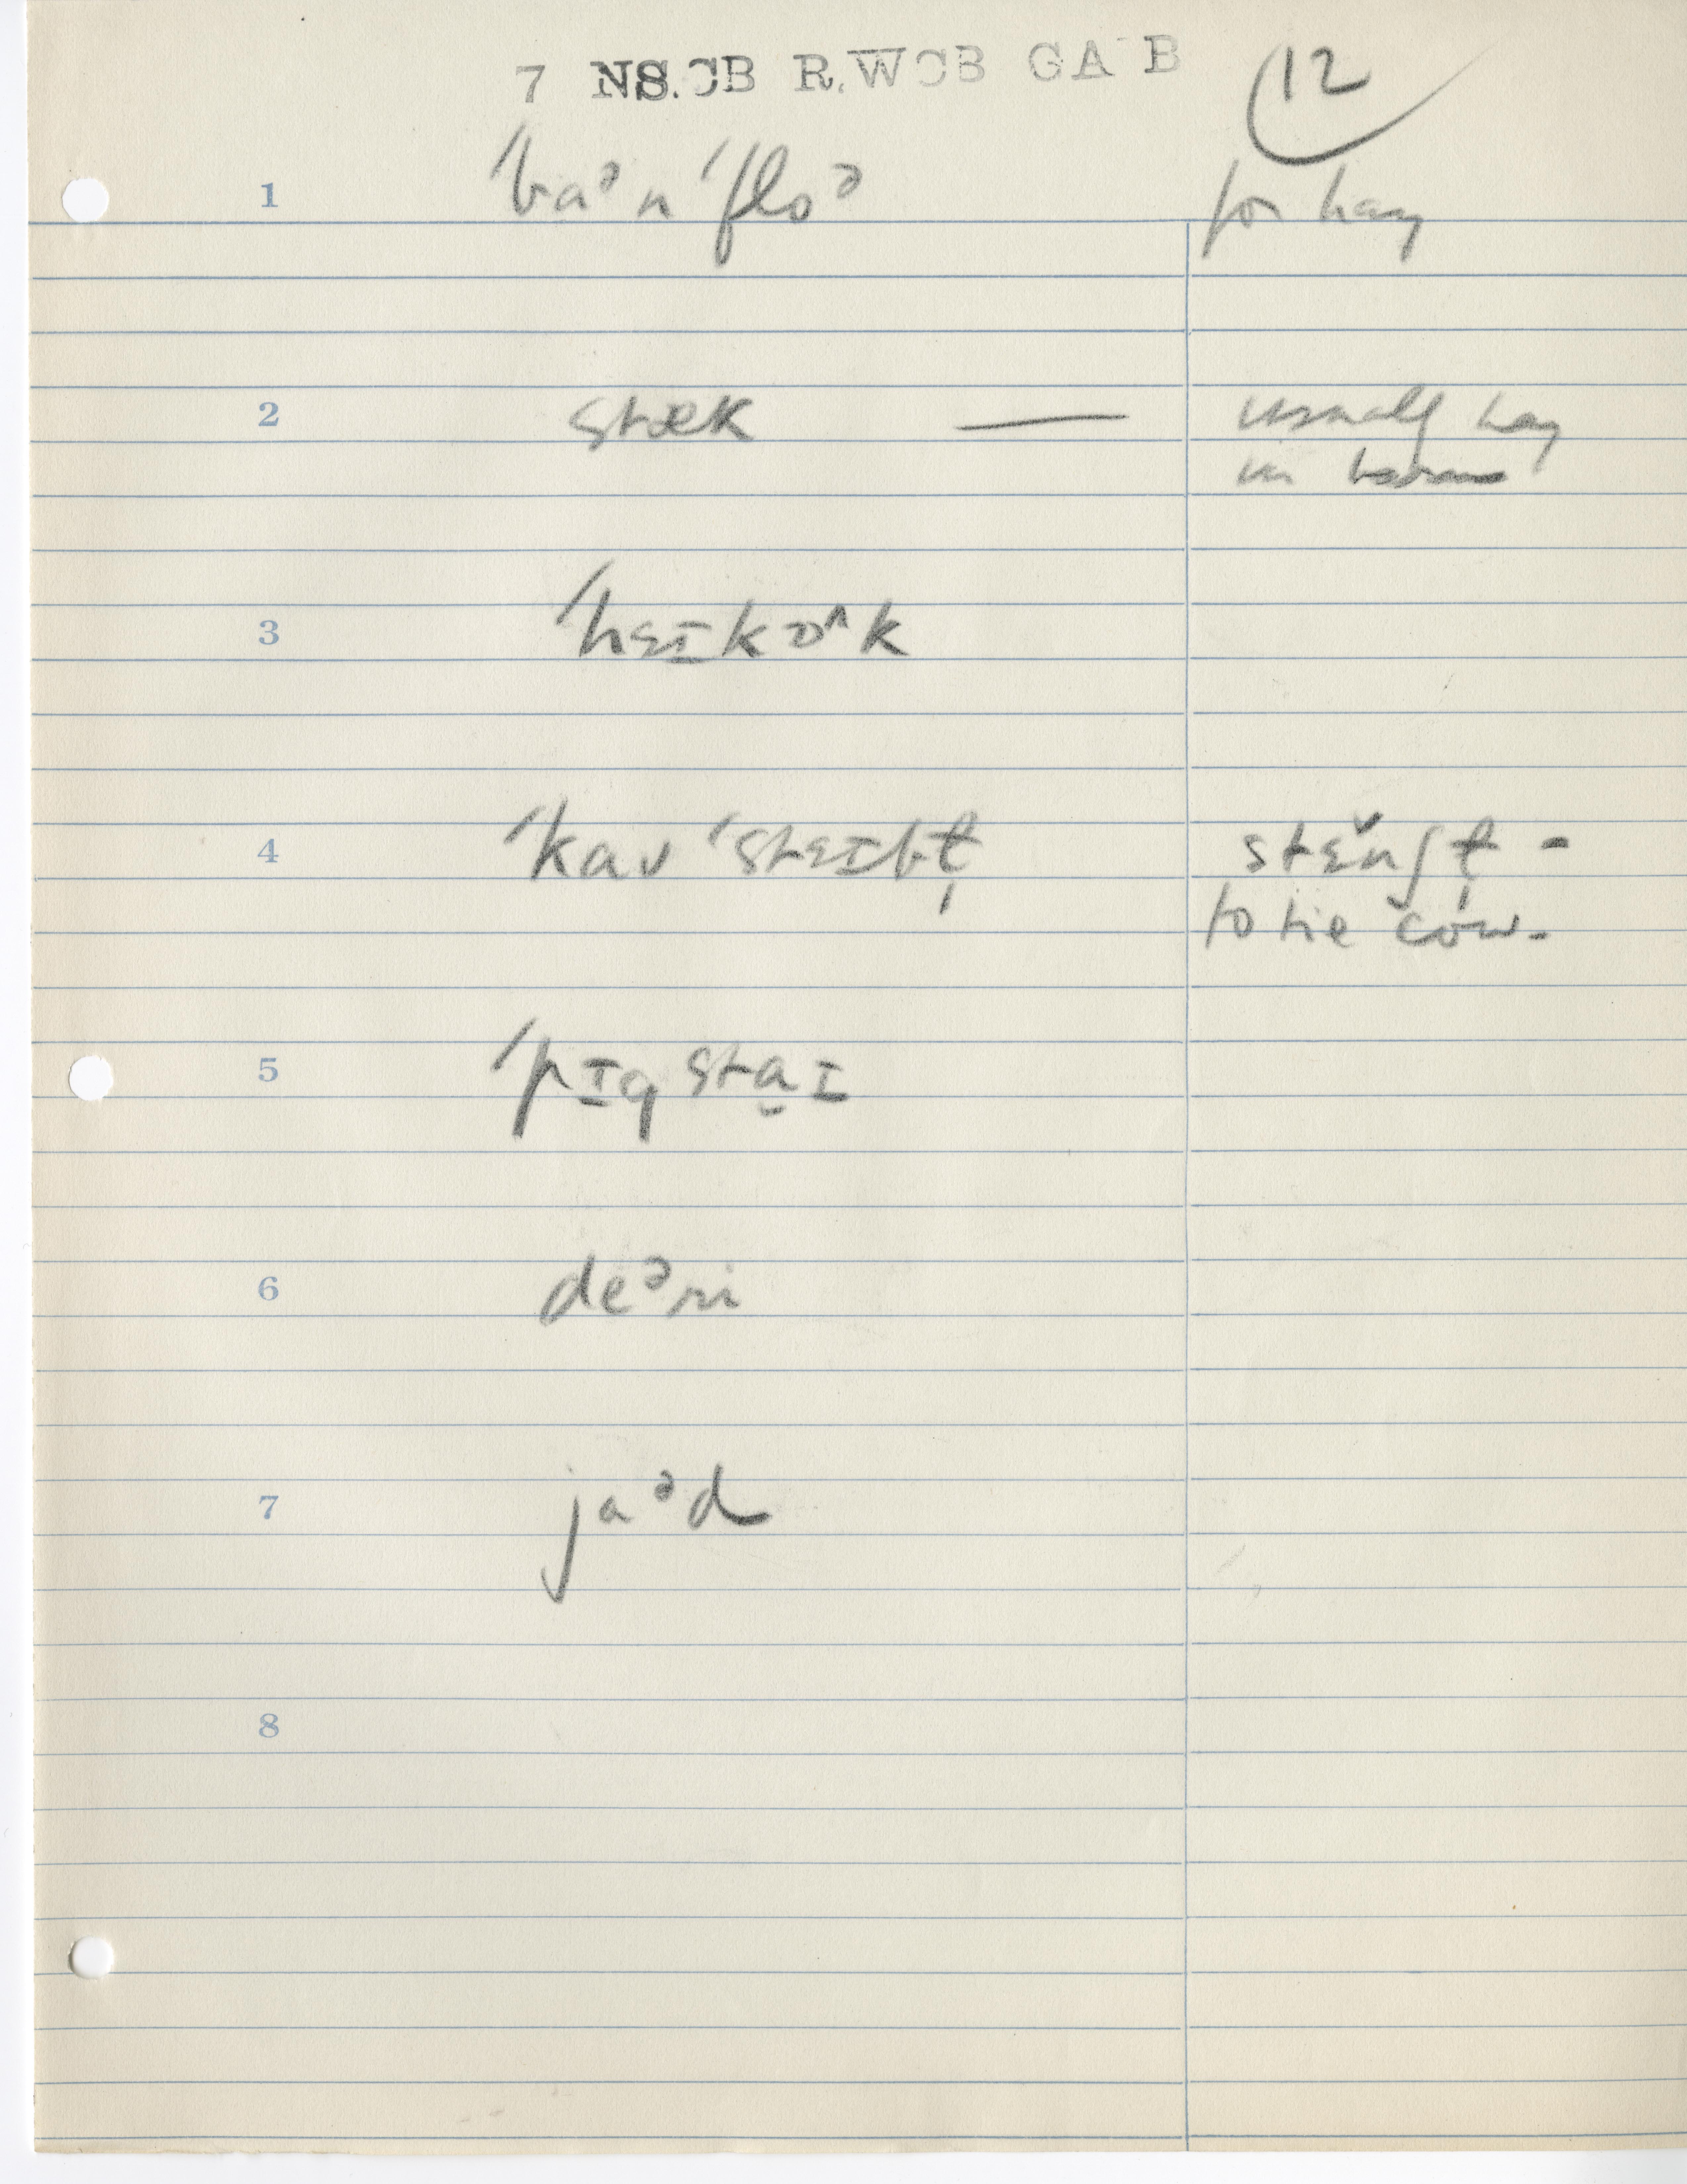 7 NS. CB R. WCB GA B
12
1 ˈbaᵊn ˈfloᵊ for hay
2 stæk — usually hay
in barns
3 ˈhɛɪkɒ^k
4 ˈkaʊ ˈstɛɪbt̩ stɛ̌nʃt̩ -
to tie cow.
5 ˈpɪgsta̠ɪ
6 deᵊri
7 jaᵊd
8